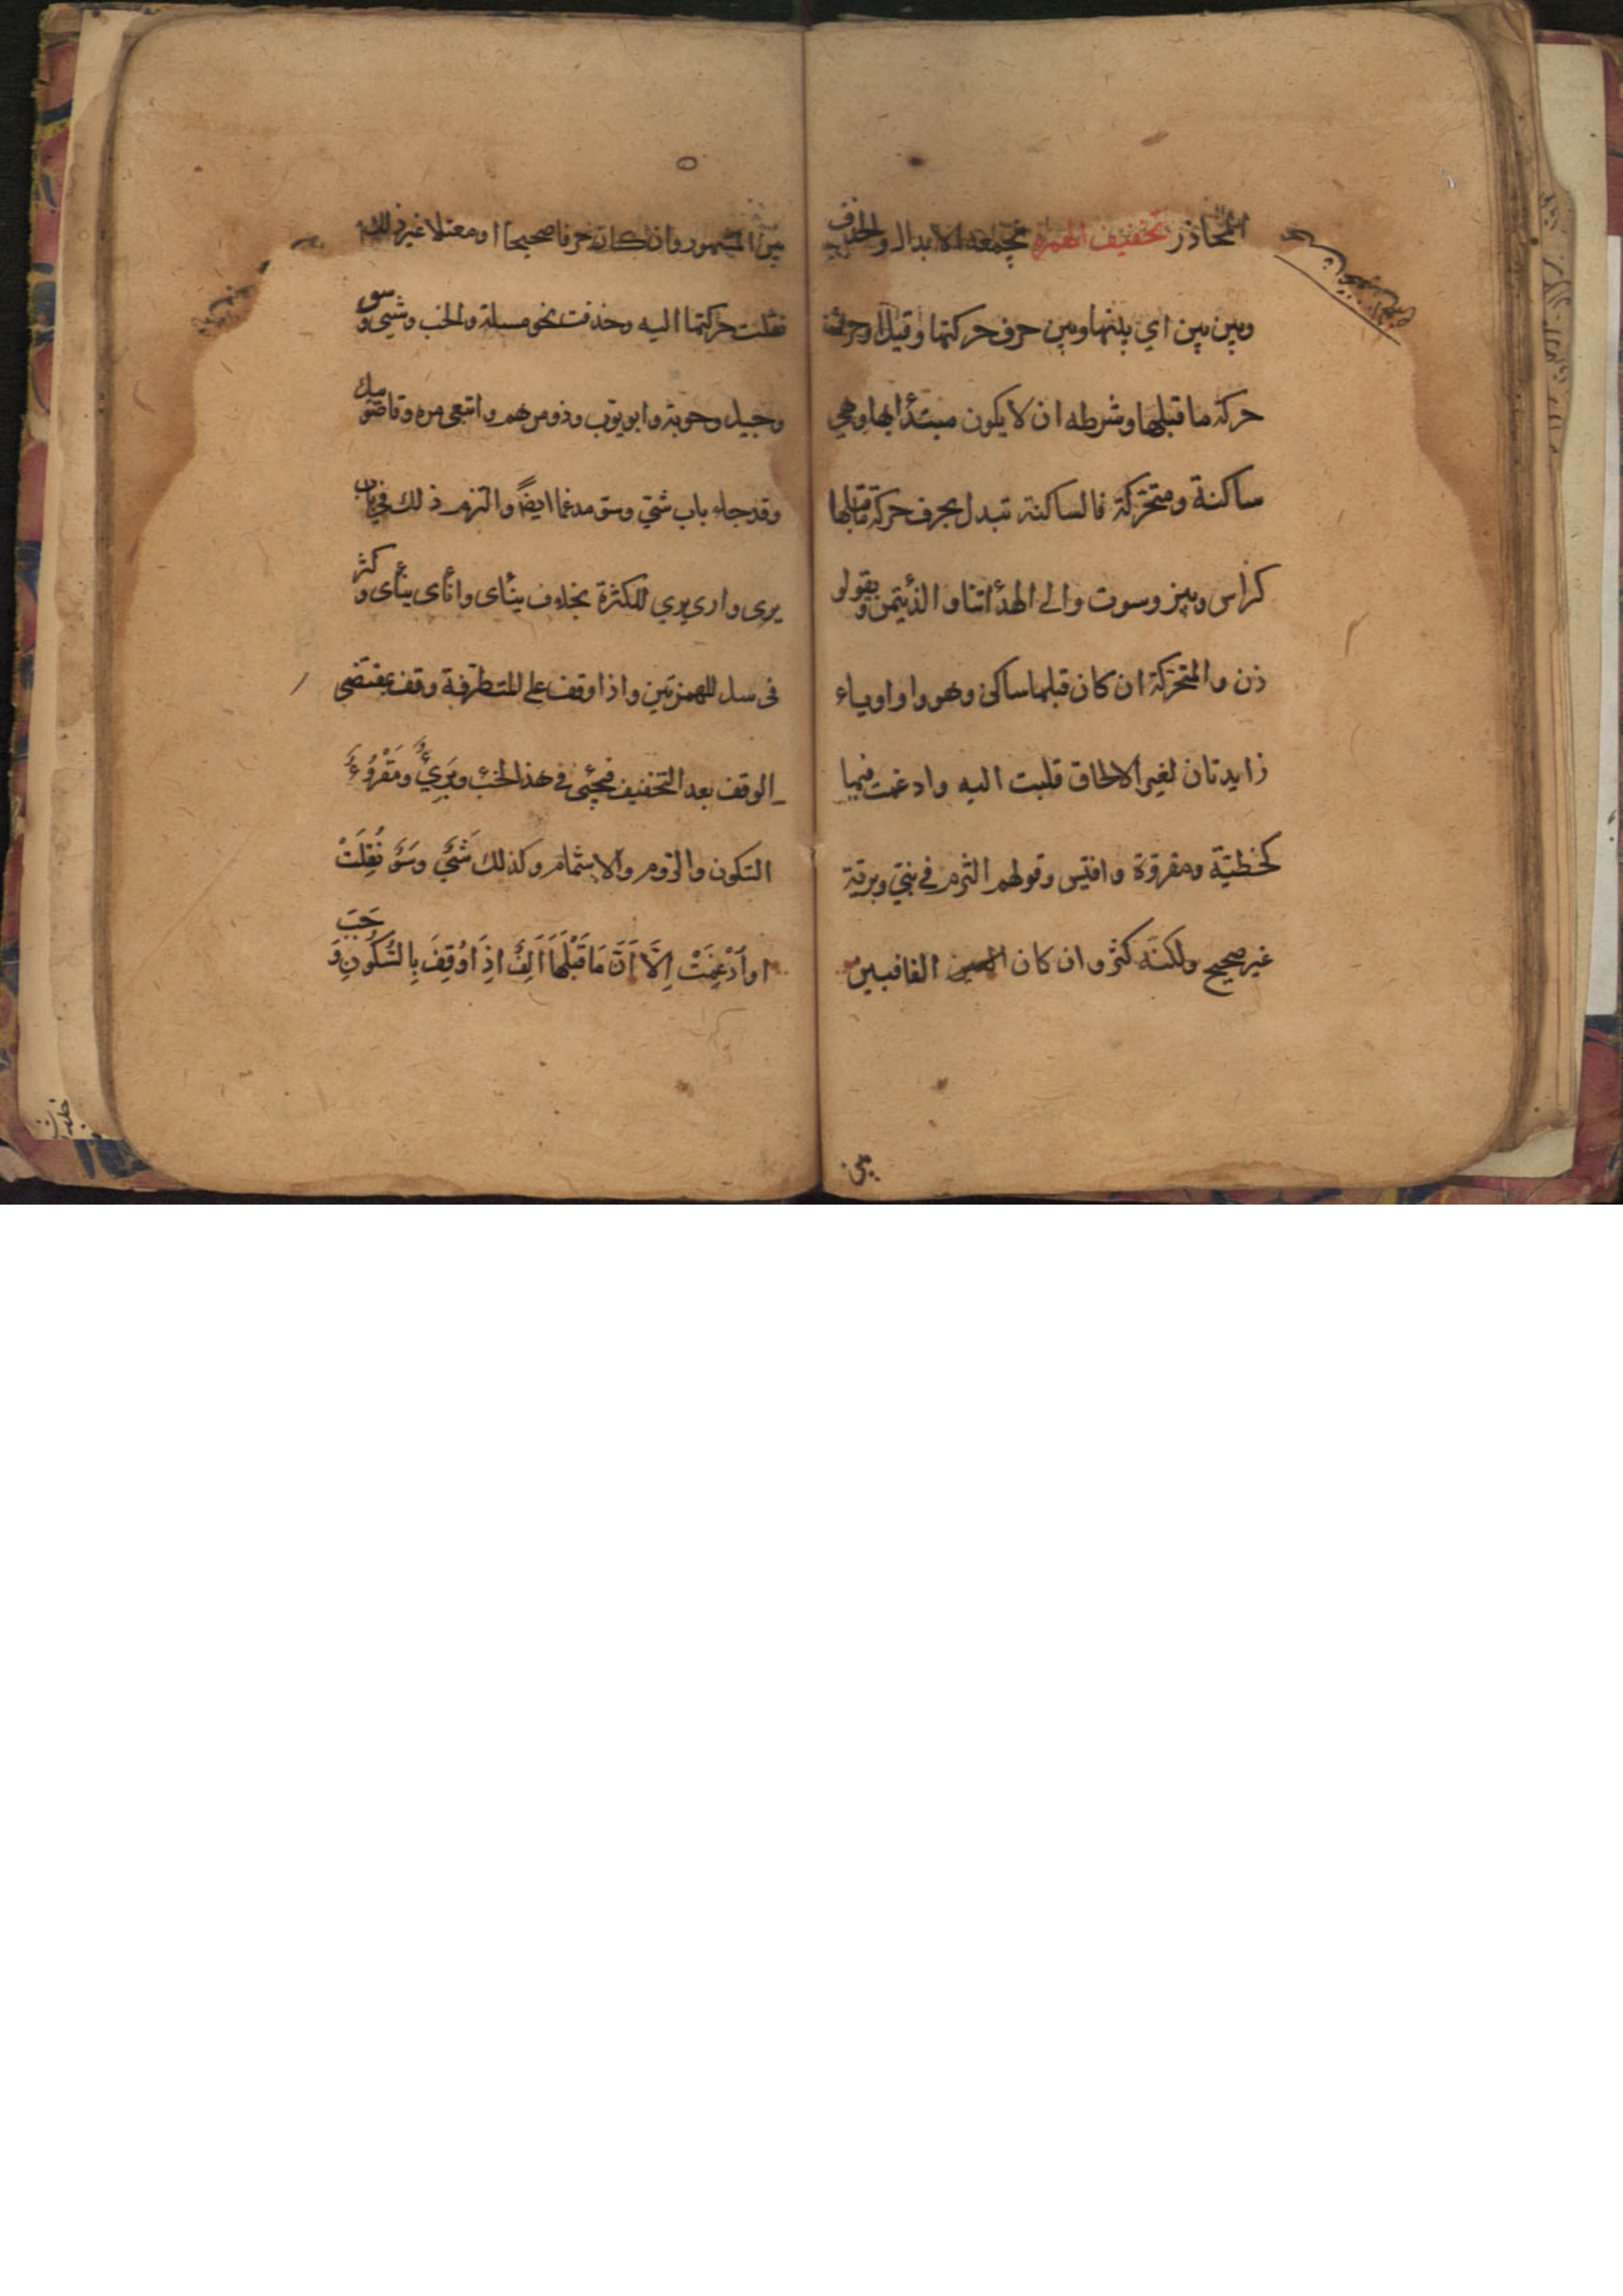 المحاذر تخفيف الهمزة تجمعه الابدال والحذف
وبين بين اي بينها وبين حرف حركتها وقيل او حرف
حركة ما قبلها وشرطه ان لا يكون مبتدأ بها وهي
ساكنة ومتحركة فالساكنة تبدل بحرف حركة ما قبلها
كراس وبير وسوت والى الهدأ اتنا والذئيتمن ويقولو
ذن والمتحركة ان كان قبلها ساكن وهو واو او ياء
زايدتان لغير الالحاق قلبت اليه وادغمت فيها
كخطية ومقروة وافيس وقولهم التزم في نبي وبرية
غير صحيح ولكنه كثر وان كان الفا فبين
بين
بين المشهور وان كان حرفا صحيحا او معتلا غير ذلك
نقلت حركتها اليه وحذفت نحو مسلة والخب وشي وسو
وجيل وحوبة وابويوب وذومرهم واتبعي مره وقاضوبيك
وقد جاء باب شي وسو مدغما ايضا والتزم ذلك في باب
يرى وارى يري للكثرة بخلاف ينأى وانأى ينأى وكثر
في سل للهمزتين واذا وقف على المتطرفة وقف بمقتضى
الوقف بعد التخفيف فيجئ في هذا الخبء وبريء ومقروء
السكون والروم والاشمام وكذلك شيء وسوء نقلت
او أدغمت إلا أن ما قبلها ألف إذا وقف بالسكون وجب